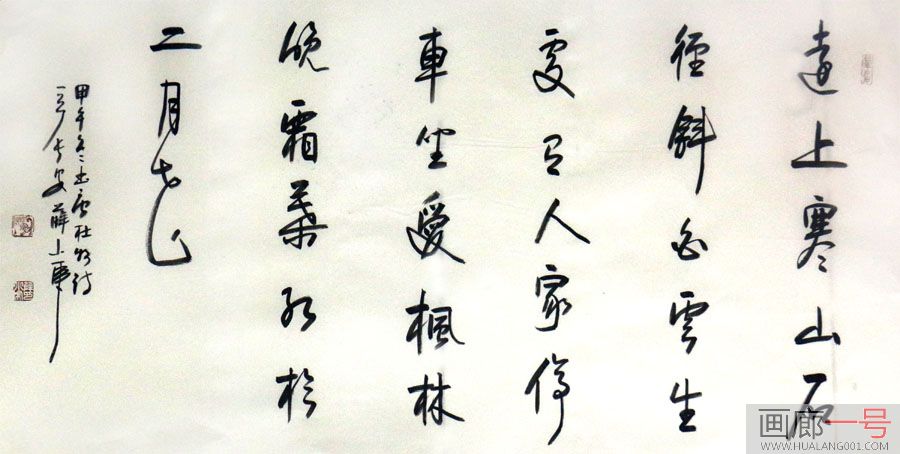 遠上寒山石
徑斜白雲生
處有人家停
車坐愛楓林
晚霜葉紅於
二月花
甲午冬書唐杜牧詩
于長安薛
画廊一号
WWW.HUALANG001.COM